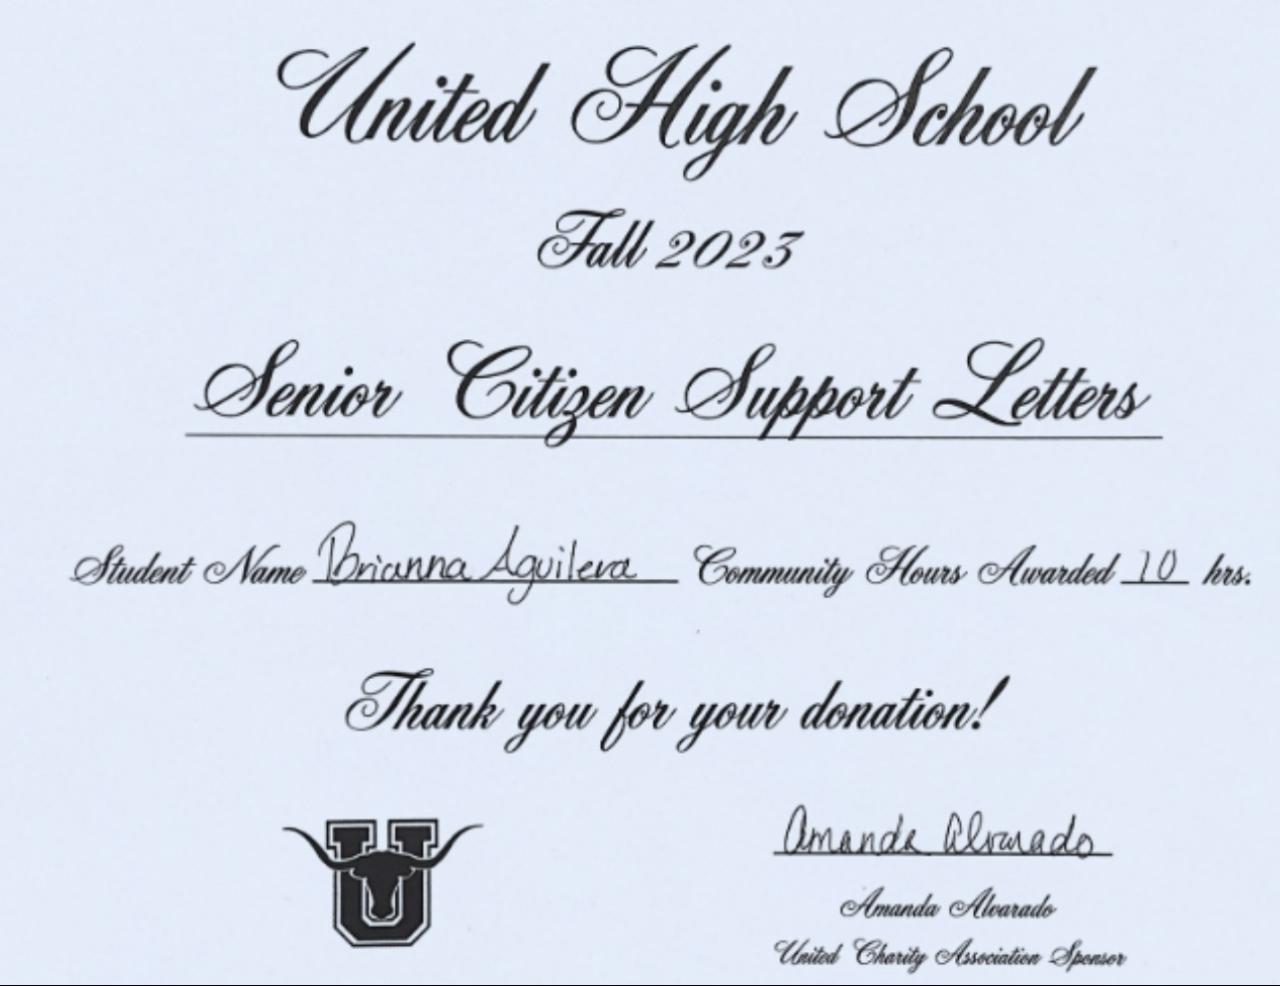 United High School
Fall 2023
Senior Citizen Support Letters
Student Name Brianna Aguilera Community Hours Awarded 10 hrs.
Thank you for your donation!
U
Amanda Alvarado
Amanda Alvarado
United Charity Association Sponsor